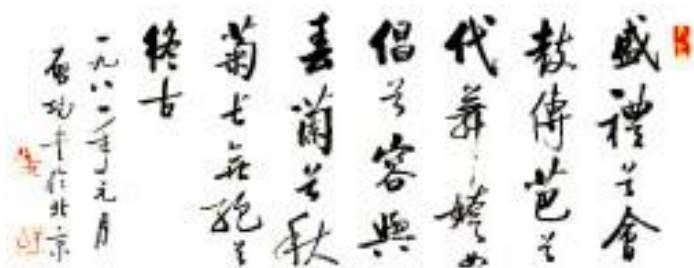 盛禮兮會
鼓傳芭兮
代舞姱女
倡兮容與
春蘭兮秋
菊長無絕兮
終古
一九八一年元月
於北京